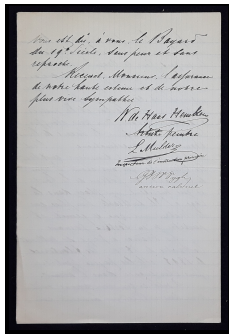 vous est dû, à vous, le Bayard
du 19e Siècle, sans peur et sans
reproche.
Recevez, Monsieur, l'assurance
de notre haute estime et de notre
plus vive sympathie
de Haas
Artiste peintre
L. Mulder
ancien